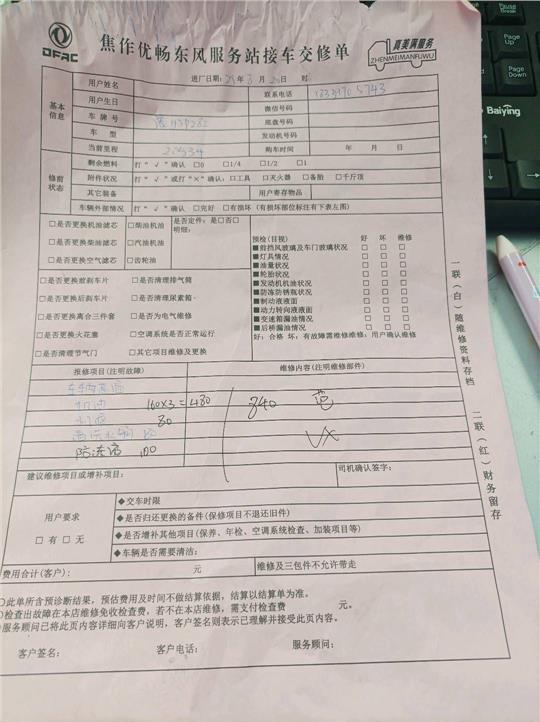 DFAC
焦作优畅东风服务站接车交修单
真美满服务
ZHENMEIMANFUWU
进厂日期: 年 8 月 日 时
基本信息
用户姓名
联系电话
用户生日
微信号码
车牌号
底盘号码
车型
发动机号码
当前里程
购车时间 年 月 日
修前状态
剩余燃料 打“√”确认 □0 □1/4 □1/2 □1
附件状况 打“√”或打“×”确认: □工具 □灭火器 □备胎 □千斤顶
其它装备 用户寄存物品
车辆外部情况 打“√”确认 □完好 □有损坏(有损坏部位标注有下表左图)
□是否更换机油滤芯 □柴油机油 是否定件: 是□否□
明细:
□是否更换柴油滤芯 □汽油机油
□是否更换空气滤芯 □齿轮油
□是否更换前刹车片 □是否清理排气筒
□是否更换后刹车片 □是否清理尿素箱
□是否更换离合三件套 □是否为电气维修
□是否更换火花塞 □空调系统是否正常运行
□是否清理节气门 □其它项目维修及更换
预检(目视) 好 坏 维修
■前挡风玻璃及车门玻璃状况 □ □ □
■灯具情况 □ □ □
■油量状况 □ □ □
■轮胎状况 □ □ □
■发动机机油状况 □ □ □
■防冻防锈瓶状况 □ □ □
■制动液液面 □ □ □
■动力转向液液面 □ □ □
■变速箱漏油情况 □ □ □
■后桥漏油情况 □ □ □
好: 合格 坏: 有故障需维修维修: 用户确认维修
报修项目(注明故障) 维修内容(注明维修部件)
机油 160×3=480 840
80
防冻液 100
建议维修项目或增补项目: 司机确认签字:
用户要求
□有 □无
◆交车时限
◆是否归还更换的备件(保修项目不退还旧件)
◆是否增补其他项目(保养、年检、空调系统检查、加装项目等)
◆车辆是否需要清洁:
费用合计(客户): 元 维修及三包件不允许带走
此单所含预诊断结果,预估费用及时间不做结算依据,结算以结算单为准。
检查出故障在本店维修免收检查费,若不在本店维修,需支付检查费 元。
服务顾问已将此页内容详细向客户说明,客户签名则表示已理解并接受此页内容。
客户签名: 客户电话: 服务顾问:
一联(白)随维修资料存档
二联(红)财务留存
PgUp
Page Up
Page Down
Baiying